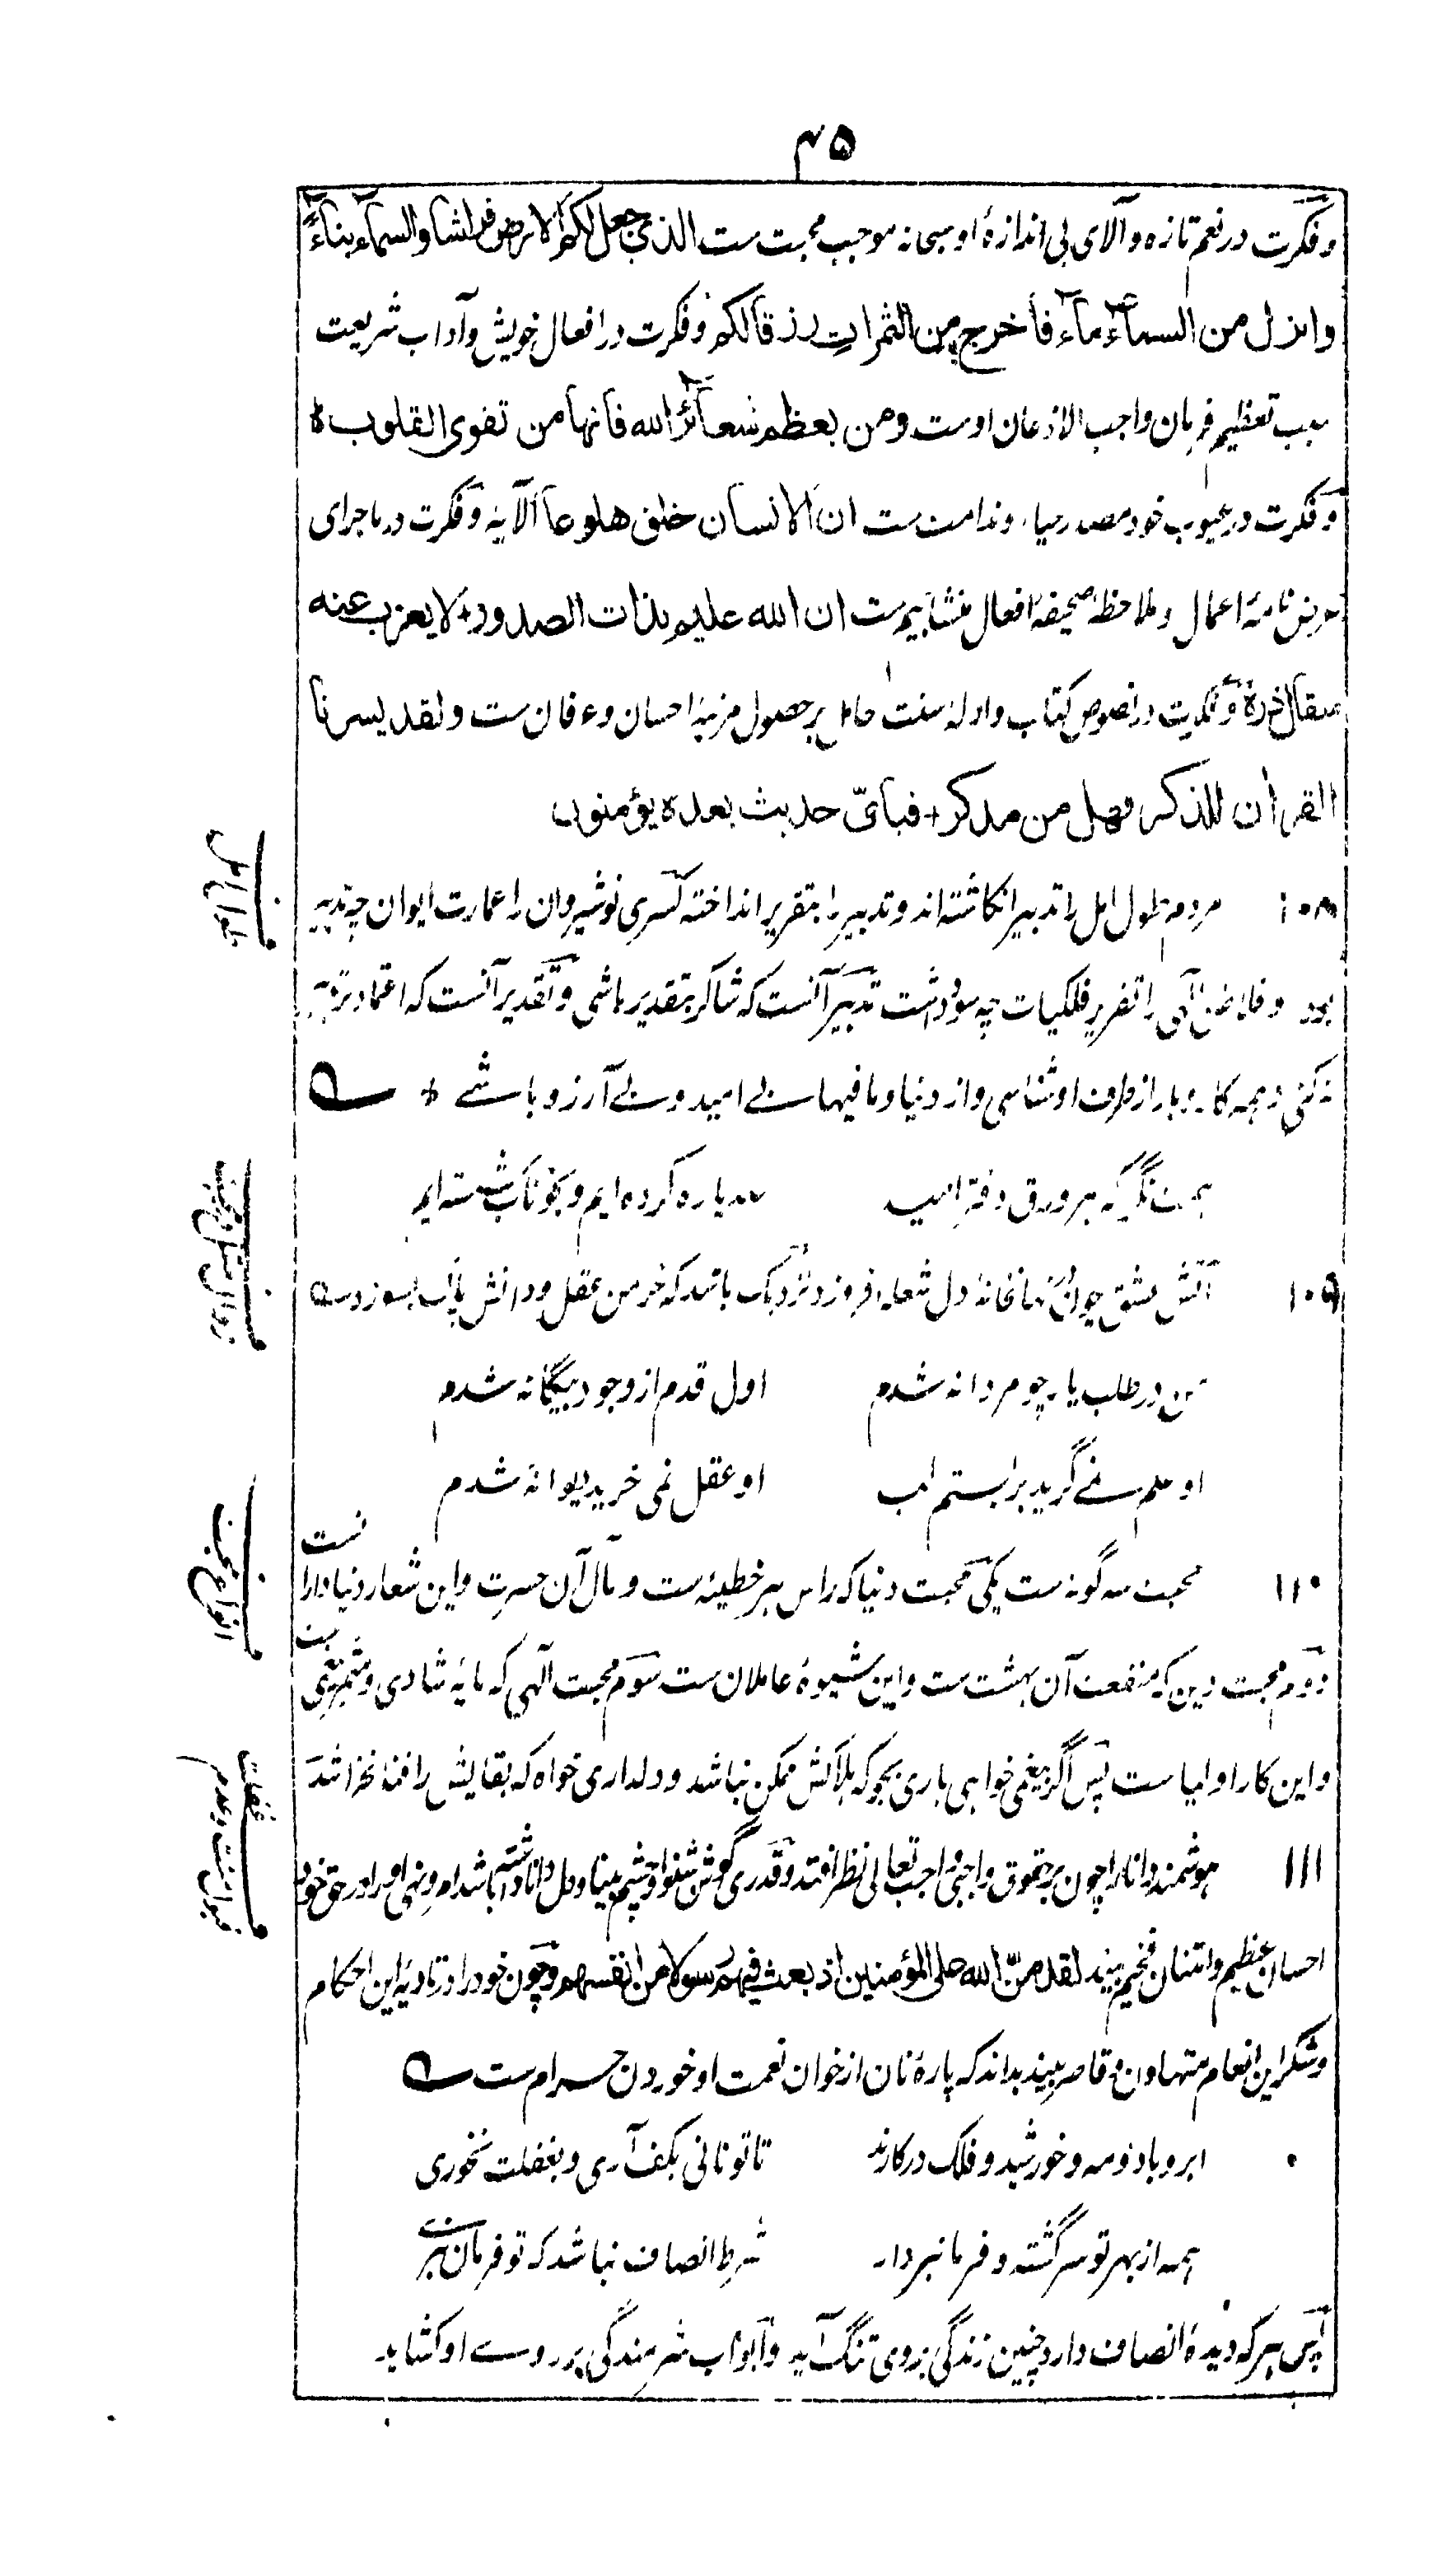 ۴۵
وفکرت در نعم تازه و آلای بی اندازهٔ او سبحانه موجب محبت ست الذی جعل لکم الارض فراشا والسمآء بنآءً
وانزل من السمآء مآء فأخرج من الثمرات رزقالکم وفکرت در افعال خویش وآداب شریعت
سبب تعظیم فرمان واجب الاذعان اوست ومن یعظم شعآئر الله فانها من تقوی القلوب ه
وفکرت در عیوب خود مصدر حیاء وندامت ست ان الانسان خلق هلوعا الآیه وفکرت در ماجرای
نامهٔ اعمال وملاحظهٔ صحیفهٔ افعال منشأ بیم ست ان الله علیم بذات الصدور + لایعزب عنه
مثقال ذرة وفکرت در نصوص کتاب وادلهٔ سنت حامل بر حصول مرتبهٔ احسان وعرفان ست ولقد یسرنا
القرأن للذکر فهل من مدکر + فبأیّ حدیث بعده یؤمنون
۱۰۸ مردم طول امل را تدبیر انگاشته اند وتدبیر را بتقریر انداخته کسری نوشیروان را عمارت ایوان چه تدبیر
بود و را تقریر فلکیات چه سود داشت تدبیر آنست که شاکر بتقدیر باشی وتقدیر آنست که اعتماد بر تدبیر
نه کنی وهمه کاروبار از طرف او شناسی واز دنیا ومافیها بے امید وبے آرزو باشے + ؎
همت نگر که هر ورق دفتر امید
صد پاره کرده ایم وبخوناب شسته ایم
۱۰۹ آتش عشق چون در نهانخانهٔ دل شعله افروزد نزدیک باشد که خرمن عقل ودانش پاک بسوزد ؎
من در طلب یار چو مردانه شدم
اول قدم از وجود بیگانه شدم
او علم نمے گرید بر بستم لب
او عقل نمی خرید دیوانه شدم
۱۱۰ محبت سه گونه ست یکی محبت دنیا که راس هر خطیئه ست ومآل آن حسرت واین شعار دنیا دارانست
دوم محبت دین که منفعت آن بهشت ست واین شیوهٔ عاملان ست سوم محبت الهی که مایهٔ شادی ومثمر بقا ست
واین کار اولیا ست پس اگر بیغمی خواهی یاری بجو که هلاکش ممکن نباشد ودلداری خواه که بقایش را فنا نخراشد
۱۱۱ هوشمند دانا را چون بر حقوق واجبی واجب تعالی نظر افتد وقدری گوش شنوا وچشم بینا ودل دانا داشته باشد امر ونهی او را در حق خود
احسان عظیم وامتنان فخیم بیند لقد منّ الله علی المؤمنین اذ بعث فیهم رسولا من انفسهم وچون خود را در تادیهٔ این احکام
وشکر این انعام متهاون وقاصر بیند بداند که پارهٔ نان از خوان نعمت او خوردن حرام ست ؎
ابر وباد ومه وخورشید وفلک در کارند
تا تو نانی بکف آری وبغفلت نخوری
همه از بهر تو سرگشته وفرمانبردار
شرط انصاف نباشد که تو فرمان نبری
پس هرکه دیدهٔ انصاف دارد چنین زندگی بر وی تنگ آید وابواب شرمندگی بر روے او کشاید
طول امل
زوال عقل در محبت
انواع محبت
غفلت